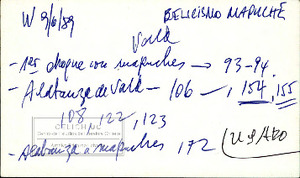 W 9/6/89 BELICISMO MAPUCHE
Vald
- 1er choque con mapuches → 93-94
- Alabanza de Vald - 106 -, 154, 155
108, 122, 123
CELICH UC
- Alabanza a mapuches, 172
(USADO